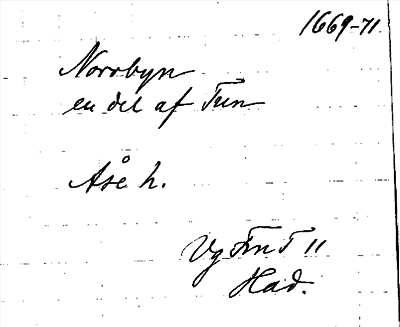 1669-71.
Norrbyn
en del af Tun
Åse h.
Vg Fm T 11
Had.